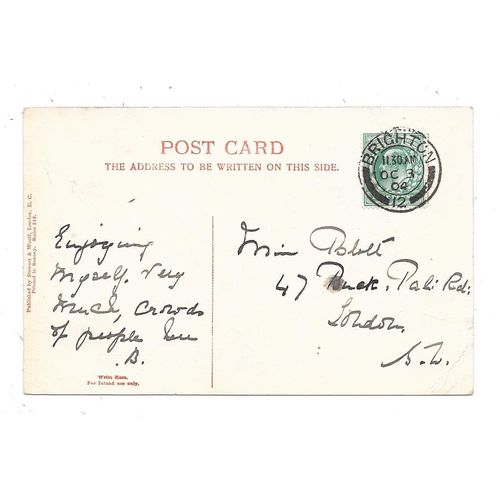 POST CARD
THE ADDRESS TO BE WRITTEN ON THIS SIDE.
BRIGHTON
11.30AM
OC 3
04
12
Enjoying
myself. Very
much, crowds
of people here
B.
Miss
47 Buck. Pal: Rd:
London.
S.W.
Write Here.
For Inland use only.
Published by Stewart & Woolf, London, E. C.
Printed in Saxony. Series 316.